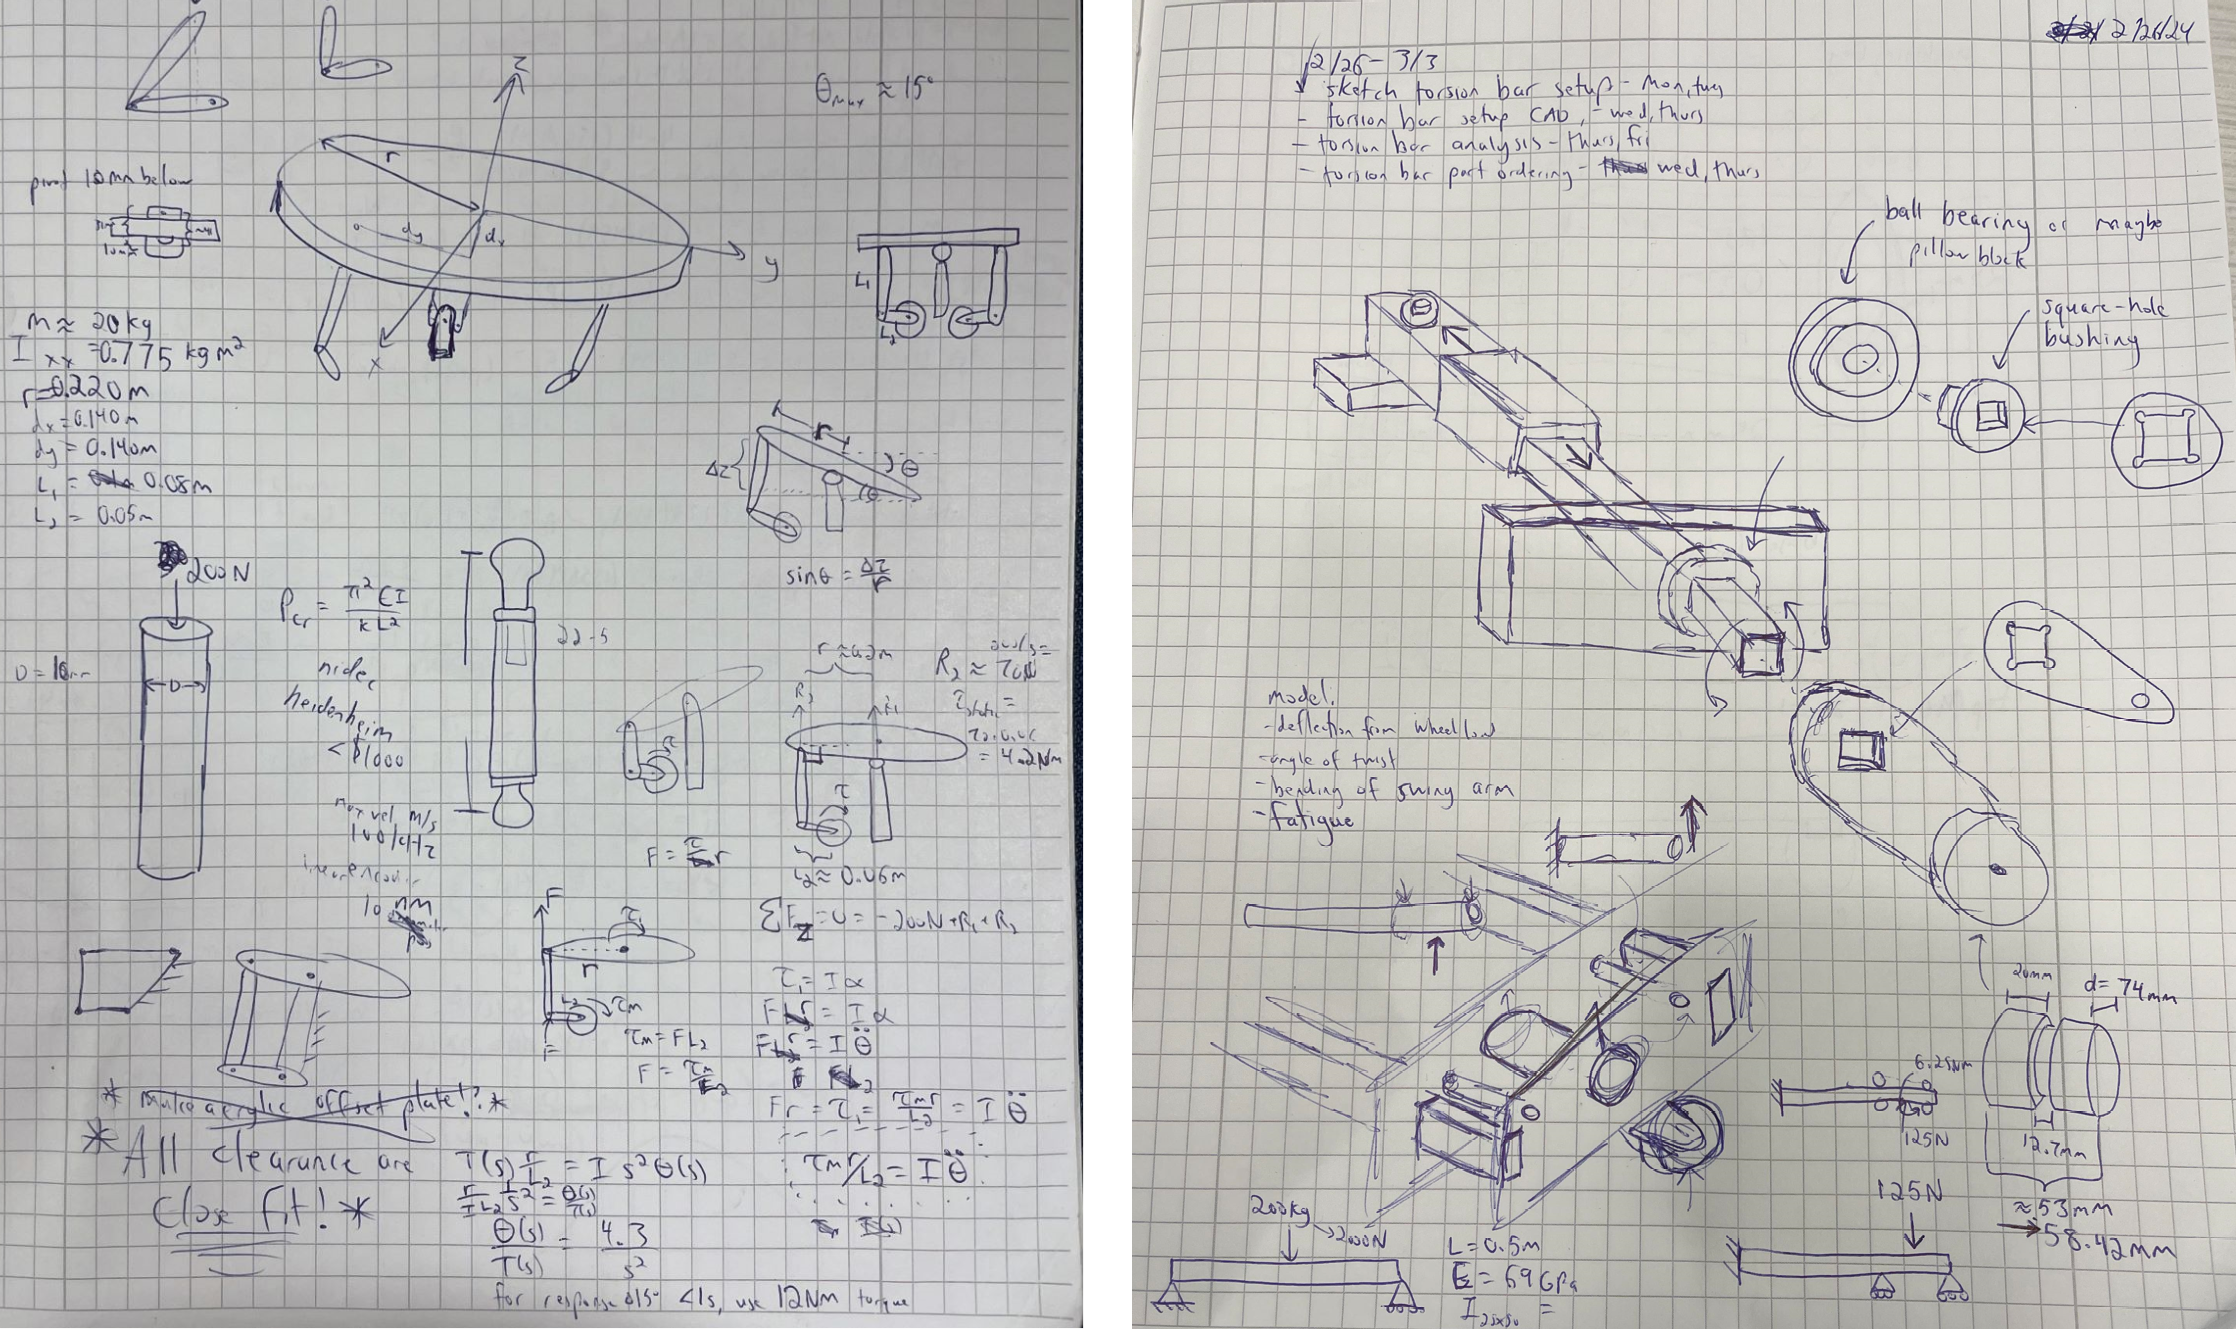 z
θmax ≈ 15°
r
pivot 10mm below
dy
dx
y
x
L1
L2
m ≈ 20kg
Ixx = 0.775 kg m²
r = 0.220 m
dx = 0.140 m
dy = 0.140m
L1 = 0.08m
L2 = 0.05m
r
Δz
θ
θ
sinθ = Δz/r
200N
Pcr = π²EI/kL²
D
nidec
heidenheim
< $1000
max vel m/s
10 nm
r ≈ 0.2m
R2 ≈ 70N
R2
R1
τstatic =
= 4.2Nm
τ
L2 ≈ 0.06m
F = τ/r
ΣFz = 0 = -200N + R1 + R2
F
τ1
r
L2
τm
F
τm = FL2
F = τm/L2
τ1 = Iα
Fr = Iα
Fr = Iθ̈
Fr = τ1 = τm r/L2 = Iθ̈
τm r/L2 = Iθ̈
* make acrylic offset plate!? *
* All clearance are
close fit! *
T(s) r/L2 = I s² θ(s)
r/IL2 1/s² = θ(s)/T(s)
θ(s)/T(s) = 4.3/s²
for response 15° <1s, use 12Nm torque
2/26/24
2/26 - 3/3
sketch torsion bar setup - mon, tues
- torsion bar setup CAD, - wed, thurs
- torsion bar analysis - thurs, fri
- torsion bar part ordering - wed, thurs
ball bearing or maybe
pillow block
square-hole
bushing
model:
- deflection from wheel load
- angle of twist
- bending of swing arm
- fatigue
20mm
d= 74mm
6.25Nm
125N
12.7mm
≈ 53mm
→ 58.42mm
125N
200kg
→2000N
L = 0.5m
E = 69GPa
I25x50 =